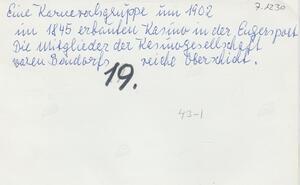 Eine Karnevalsgruppe um 1902
7.1230
im 1845 erbauten Kasino in der Engerspost
Die Mitglieder der Kasinogesellschaft
waren Bendorfs reiche Oberschicht.
19.
43-1